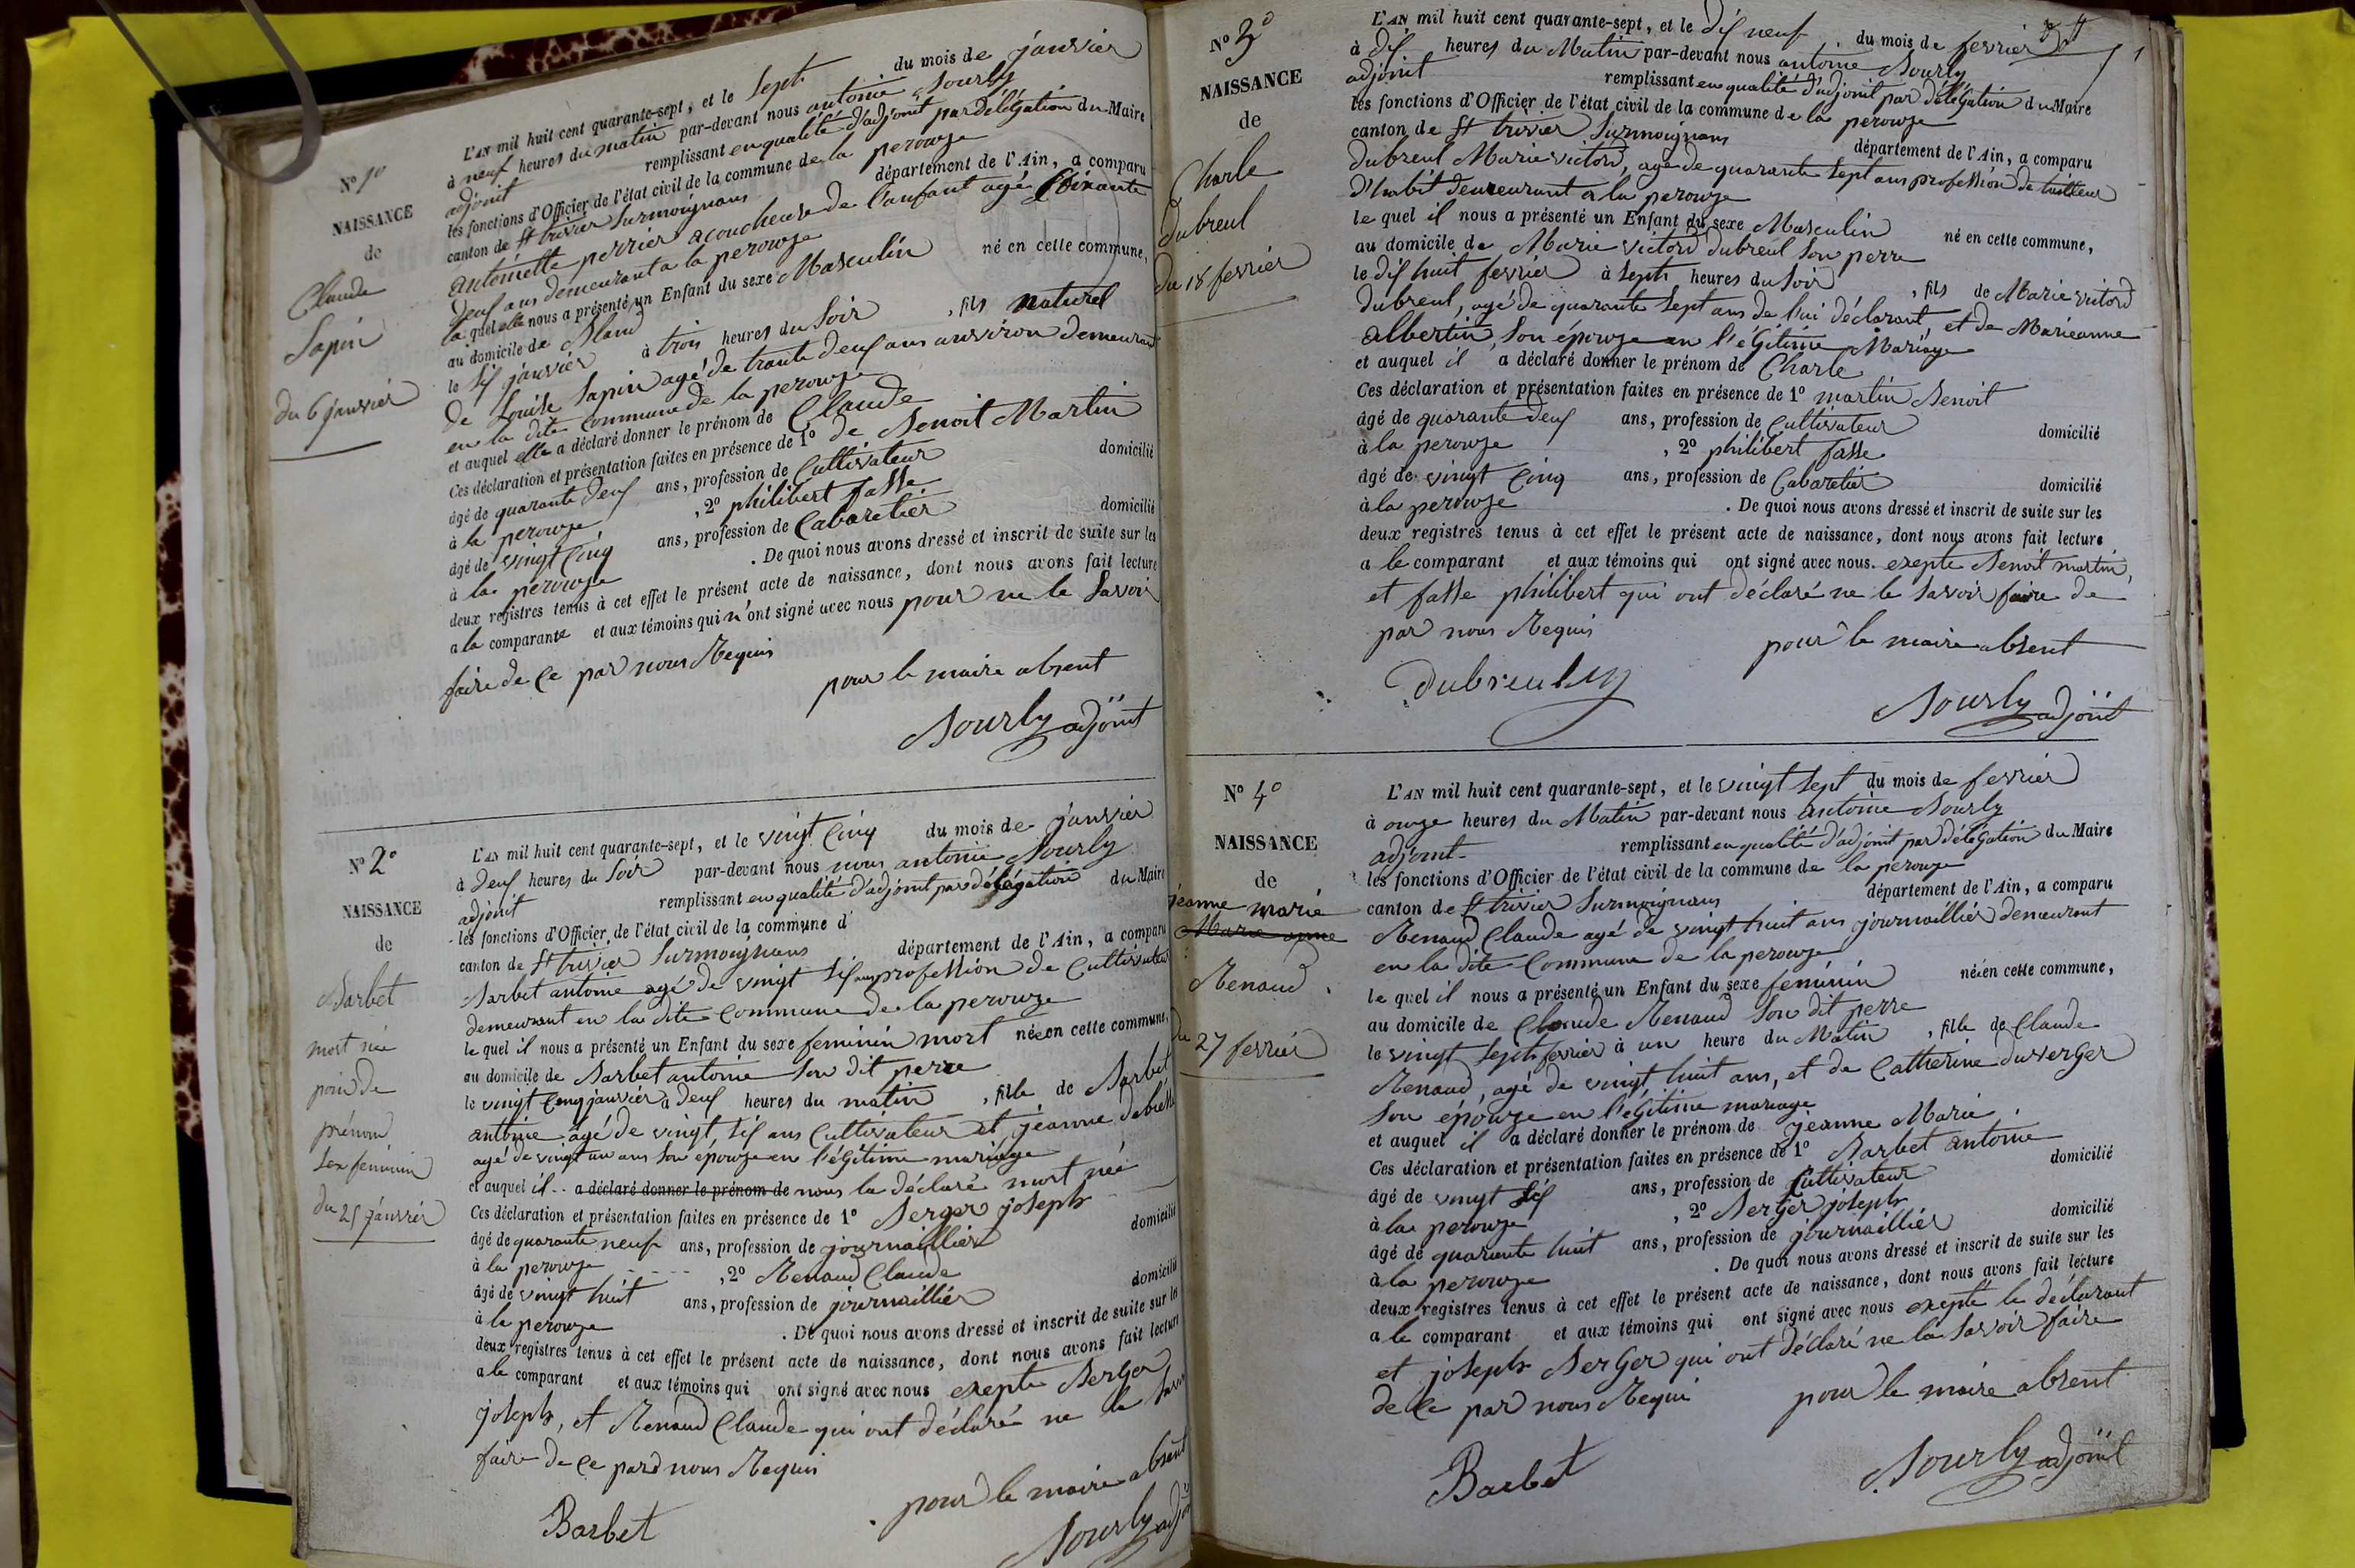 N° 1°
NAISSANCE
de
Claude
Sapin
du 6 janvier
L'AN mil huit cent quarante-sept, et le Sept du mois de janvier
à neuf heures du matin par-devant nous antoine Bourly
adjoint remplissant en qualité d'adjoint par délégation du Maire
les fonctions d'Officier de l'état civil de la commune de la perouze
canton de St trivier Surmoignans département de l'Ain, a comparu
antoinette perrier acoucheuse de l'anfant agé Soixante
deux ans demeurant a la perouze
la quel elle nous a présenté un Enfant du sexe Masculin né en cette commune,
au domicile de Bland
le Six janvier à trois heures du Soir , fils naturel
de Louise Sapin agé de trante deux ans anviron demeurant
en la dite commune de la perouze
et auquel elle a déclaré donner le prénom de Claude
Ces déclaration et présentation faites en présence de 1° de Benoit Martin
âgé de quarante deux ans, profession de Cultivateur domicilié
à la perouze , 2° philibert fasse
âgé de vingt Cinq ans, profession de Cabaretier domicilié
à la perouze . De quoi nous avons dressé et inscrit de suite sur les
deux registres tenus à cet effet le présent acte de naissance, dont nous avons fait lecture
a la comparante et aux témoins qui n'ont signé avec nous pour ne le Savoir
faire de Ce par nous Requis
pour le maire absent
Bourly adjoint
N° 2°
NAISSANCE
de
Barbet
mort née
poin de
prénom
Sex feminin
du 25 janvier
L'AN mil huit cent quarante-sept, et le vingt Cinq du mois de janvier
à deux heures du Soir par-devant nous nous antoine Bourly
adjoint remplissant en qualité d'adjoint par délégation du Maire
les fonctions d'Officier de l'état civil de la commune d
canton de St trivier Surmoignans département de l'Ain, a comparu
Barbet antoine agé de vingt Six ans profession de Cultivateur
demeurant en la dite Commune de la perouze
le quel il nous a présenté un Enfant du sexe feminin mort née en cette commune,
au domicile de Barbet antoine Son dit perre
le vingt Cinq janvier à deux heures du matin , fille de Barbet
antoine âgé de vingt Six ans Cultivateur et jeanne
agé de vingt un ans Son épouze en l'égitime mariage
et auquel il a déclaré donner le prénom de nous la déclaré mort née
Ces déclaration et présentation faites en présence de 1° Berger joseph
âgé de quarante neuf ans, profession de journaillier domicilié
à la perouze , 2° Renaud Claude
âgé de vingt huit ans, profession de journaillier domicilié
à la perouze . De quoi nous avons dressé et inscrit de suite sur les
deux registres tenus à cet effet le présent acte de naissance, dont nous avons fait lecture
a le comparant et aux témoins qui ont signé avec nous exepté Berger
joseph, et Renaud Claude qui ont déclaré ne le
faire de Ce par nous Requis
pour le maire absent
Barbet
Bourly adjoint
N° 3°
NAISSANCE
de
Charle
dubreul
du 18 fevrier
L'AN mil huit cent quarante-sept, et le dix neuf du mois de fevrier
à dix heures du Matin par-devant nous antoine Bourly
adjoint remplissant en qualité d'adjoint par délégation du Maire
les fonctions d'Officier de l'état civil de la commune de la perouze
canton de St trivier Surmoignans département de l'Ain, a comparu
dubreul Marie victord, agé de quarante Sept ans profession de tailleur
d'habit demeurant a la perouze
le quel il nous a présenté un Enfant du sexe Masculin né en cette commune,
au domicile de Marie victord dubreul Son perre
le dix huit fevrier à Sept heures du Soir , fils de Marie victord
dubreul, agé de quarante Sept ans de l'ui déclarant, et de Marieanne
albertin, Son épouze en l'égitime Mariage
et auquel il a déclaré donner le prénom de Charle
Ces déclaration et présentation faites en présence de 1° martin Benoit
âgé de quarante deux ans, profession de Cultivateur domicilié
à la perouze , 2° philibert fasse
âgé de vingt Cinq ans, profession de Cabaretier domicilié
à la perouze . De quoi nous avons dressé et inscrit de suite sur les
deux registres tenus à cet effet le présent acte de naissance, dont nous avons fait lecture
a le comparant et aux témoins qui ont signé avec nous. exepté Benoit martin,
et fasse philibert qui ont déclaré ne le Savoir faire de
par nous Requis
pour le maire absent
Dubreul
Bourly adjoint
N° 4°
NAISSANCE
de
jeanne marie
Marie anne
Renaud
du 27 fevrier
L'AN mil huit cent quarante-sept, et le vingt Sept du mois de fevrier
à onze heures du Matin par-devant nous antoine Bourly
adjoint remplissant en qualité d'adjoint par délégation du Maire
les fonctions d'Officier de l'état civil de la commune de la perouze
canton de St trivier Surmoignans département de l'Ain, a comparu
Renaud Claude agé de vingt huit ans journaillier demeurant
en la dite Commune de la perouze
le quel il nous a présenté un Enfant du sexe feminin née en cette commune,
au domicile de Claude Renaud Son dit perre
le vingt Sept fevrier à un heure du Matin , fille de Claude
Renaud, agé de vingt huit ans, et de Catherine duverger
Son épouze en l'égitime mariage
et auquel il a déclaré donner le prénom de jeanne Marie
Ces déclaration et présentation faites en présence de 1° Barbet antoine
âgé de vingt Six ans, profession de Cultivateur domicilié
à la perouze , 2° Berger joseph
âgé de quarante huit ans, profession de journaillier domicilié
à la perouze . De quoi nous avons dressé et inscrit de suite sur les
deux registres tenus à cet effet le présent acte de naissance, dont nous avons fait lecture
a le comparant et aux témoins qui ont signé avec nous exepté le déclarant
et joseph Berger qui ont déclaré ne la Savoir faire
de Ce par nous Requi
pour le maire absent
Barbet
Bourly adjoint